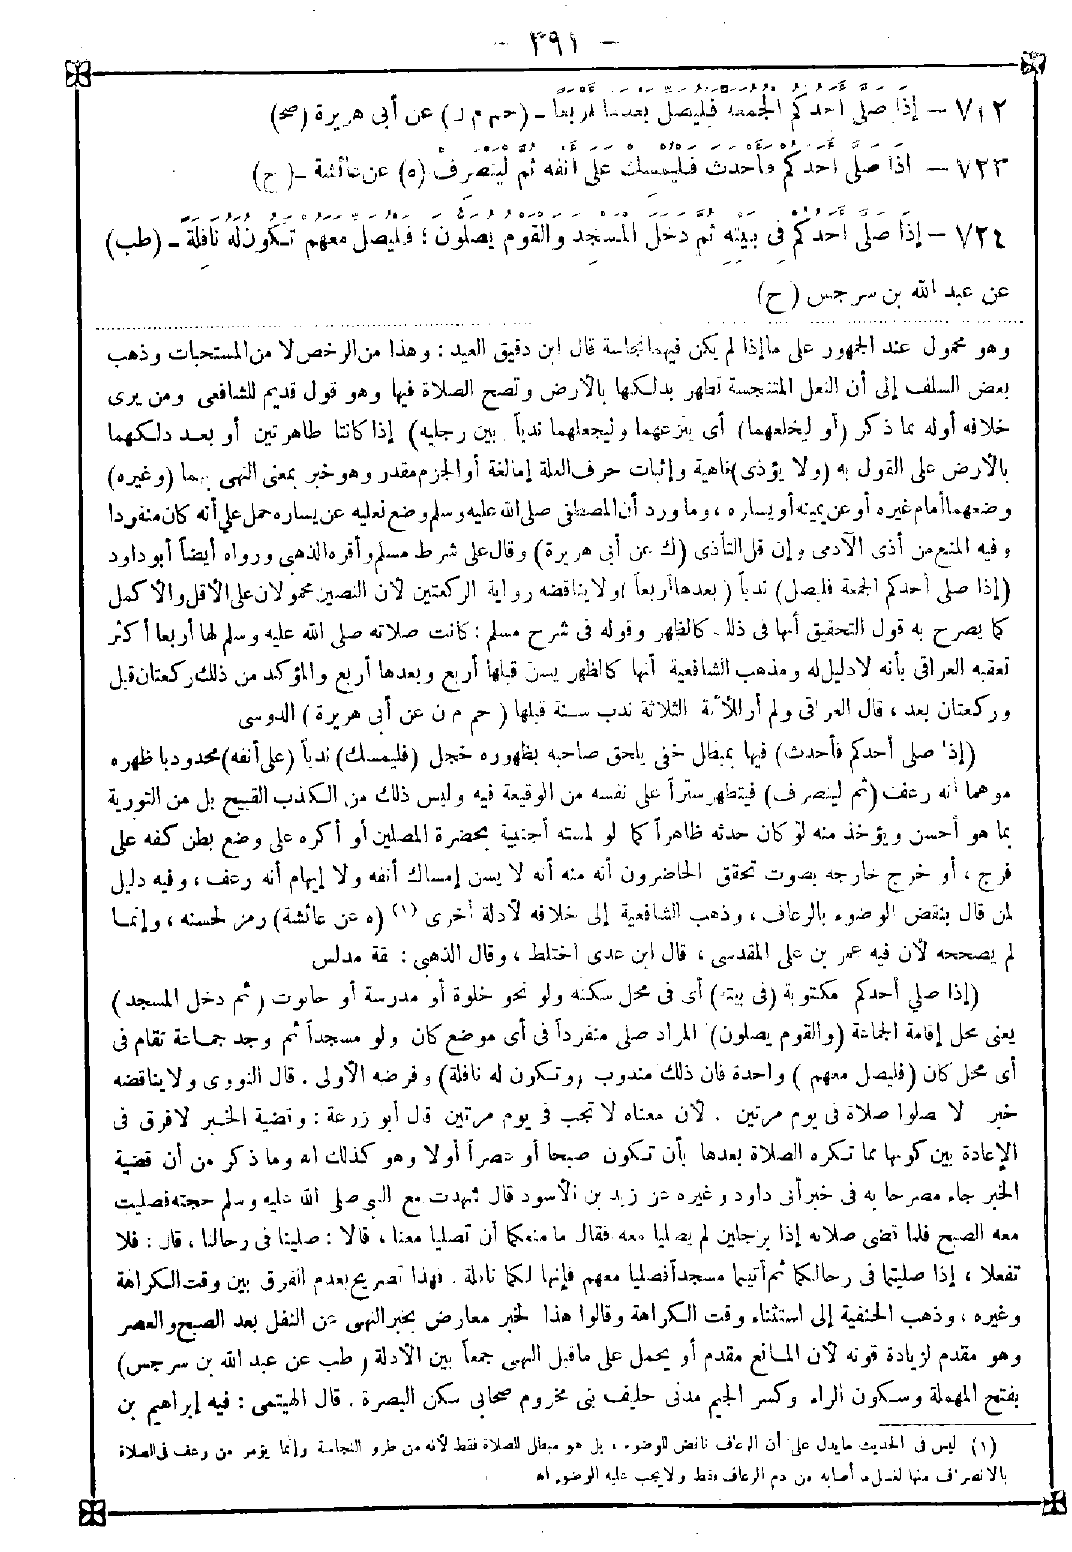 - ٣٩١ -
٧٢٢ - إذَا صَلَّى أَحَدُكُمُ الْجُمُعَةَ فَلْيُصَلِّ بَعْدَهَا أَرْبَعًا - (حم م ن) عن أبى هريرة (صح)
٧٢٣ - إذَا صَلَّى أَحَدُكُمْ فَأَحْدَثَ فَلْيُمْسِكْ عَلَى أَنْفِهِ ثُمَّ لْيَنْصَرِفْ (ه) عن عائشة - (ح)
٧٢٤ - إذَا صَلَّى أَحَدُكُمْ فِى بَيْتِهِ ثُمَّ دَخَلَ الْمَسْجِدَ وَالْقَوْمُ يُصَلُّونَ ؛ فَلْيُصَلِّ مَعَهُمْ تَكُونُ لَهُ نَافِلَةً - (طب)
عن عبد الله بن سرجس (ح)
وهو محمول عند الجمهور على ما إذا لم يكن فيهما نجاسة قال ابن دقيق العيد : وهذا من الرخص لا من المستحبات وذهب
بعض السلف إلى أن النعل المتنجسة تطهر بدلكها بالأرض وتصح الصلاة فيها وهو قول قديم للشافعى ومن يرى
خلافه أوله بما ذكر (أو ليخلعهما) أى ينزعهما وليجعلهما ندباً بين رجليه) إذا كانتا طاهرتين أو بعد دلكهما
بالأرض على القول به (ولا يؤذى) ناهية وإثبات حرف العلة إما لغة أو الجزم مقدر وهو خبر بمعنى النهى بهما (وغيره)
وضعهما أمام غيره أو عن يمينه أو يساره ، وما ورد أن المصطفى صلى الله عليه وسلم وضع نعليه عن يساره حمل على أنه كان منفردا
وفيه المنع من أذى الآدمى وإن قل التأذى (ك عن أبى هريرة) وقال على شرط مسلم وأقره الذهبى ورواه أيضاً أبو داود
(إذا صلى أحدكم الجمعة فليصل) ندباً (بعدها أربعاً) ولا يناقضه رواية الركعتين لأن النصين محمولان على الأقل والأكمل
كما يصرح به قول التحقيق أنها فى ذلك كالظهر وقوله فى شرح مسلم : كانت صلاته صلى الله عليه وسلم لها أربعا أكثر
تعقبه العراقى بأنه لا دليل له ومذهب الشافعية أنها كالظهر يسن قبلها أربع وبعدها أربع والمؤكد من ذلك ركعتان قبل
وركعتان بعد ، قال العراقى ولم أر للأئمة الثلاثة ندب سنة قبلها (حم م ن عن أبى هريرة) الدوسى
(إذا صلى أحدكم فأحدث) فيها بمبطل خفى يلحق صاحبه بظهوره خجل (فليمسك) ندباً (على أنفه) محدودبا ظهره
موهما أنه رعف (ثم لينصرف) فيتطهر ستراً على نفسه من الوقيعة فيه وليس ذلك من الكذب القبيح بل من التورية
بما هو أحسن ويؤخذ منه لو كان حدثه ظاهراً كما لو لمسته أجنبية بحضرة المصلين أو أكره على وضع بطن كفه على
فرج ، أو خرج خارجه بصوت تحقق الحاضرون أنه منه أنه لا يسن إمساك أنفه ولا إيهام أنه رعف ، وفيه دليل
لمن قال بنقض الوضوء بالرعاف ، وذهب الشافعية إلى خلافه لأدلة أخرى (١) (ه عن عائشة) رمز لحسنه ، وإنما
لم يصححه لأن فيه عمر بن على المقدسى ، قال ابن عدى اختلط ، وقال الذهبى : ثقة مدلس
(إذا صلي أحدكم مكتوبة (فى بيته) أى فى محل سكنه ولو نحو خلوة أو مدرسة أو حانوت (ثم دخل المسجد)
يعنى محل إقامة الجماعة (والقوم يصلون) المراد صلى منفرداً فى أى موضع كان ولو مسجداً ثم وجد جماعة تقام فى
أى محل كان (فليصل معهم) واحدة فان ذلك مندوب (وتكون له نافلة) وفرضه الأولى . قال النووى ولا يناقضه
خبر لا صلوا صلاة فى يوم مرتين . لأن معناه لا تجب فى يوم مرتين قال أبو زرعة : وقضية الخبر لا فرق فى
الإعادة بين كونها مما تكره الصلاة بعدها بأن تكون صبحا أو عصراً أولا وهو كذلك اه وما ذكر من أن قضية
الخبر جاء مصرحا به فى خبر أبى داود وغيره عن زيد بن الأسود قال شهدت مع النبى صلى الله عليه وسلم حجته فصليت
معه الصبح فلما قضى صلاته إذا برجلين لم يصليا معه فقال ما منعكما أن تصليا معنا ، قالا : صلينا فى رحالنا ، قال : فلا
تفعلا ، إذا صليتما فى رحالكما ثم أتيتما مسجداً فصليا معهم فإنها لكما نافلة . فهذا تصريح بعدم الفرق بين وقت الكراهة
وغيره ، وذهب الحنفية إلى استثناء وقت الكراهة وقالوا هذا لخبر معارض بخبر النهى عن النفل بعد الصبح والعصر
وهو مقدم لزيادة قوته لأن المانع مقدم أو يحمل على ماقبل النهى جمعاً بين الأدلة (طب عن عبد الله بن سرجس)
بفتح المهملة وسكون الراء وكسر الجيم مدنى حليف بنى مخزوم صحابى سكن البصرة . قال الهيتمى : فيه إبراهيم بن
(١) ليس فى الحديث ما يدل على أن الرعاف ناقض للوضوء ، بل هو مبطل للصلاة فقط لأنه من طرو النجاسة وإنما يؤمر من رعف فى الصلاة
بالانصراف منها لغسل ما أصابه من دم الرعاف فقط ولا يجب عليه الوضوء اه